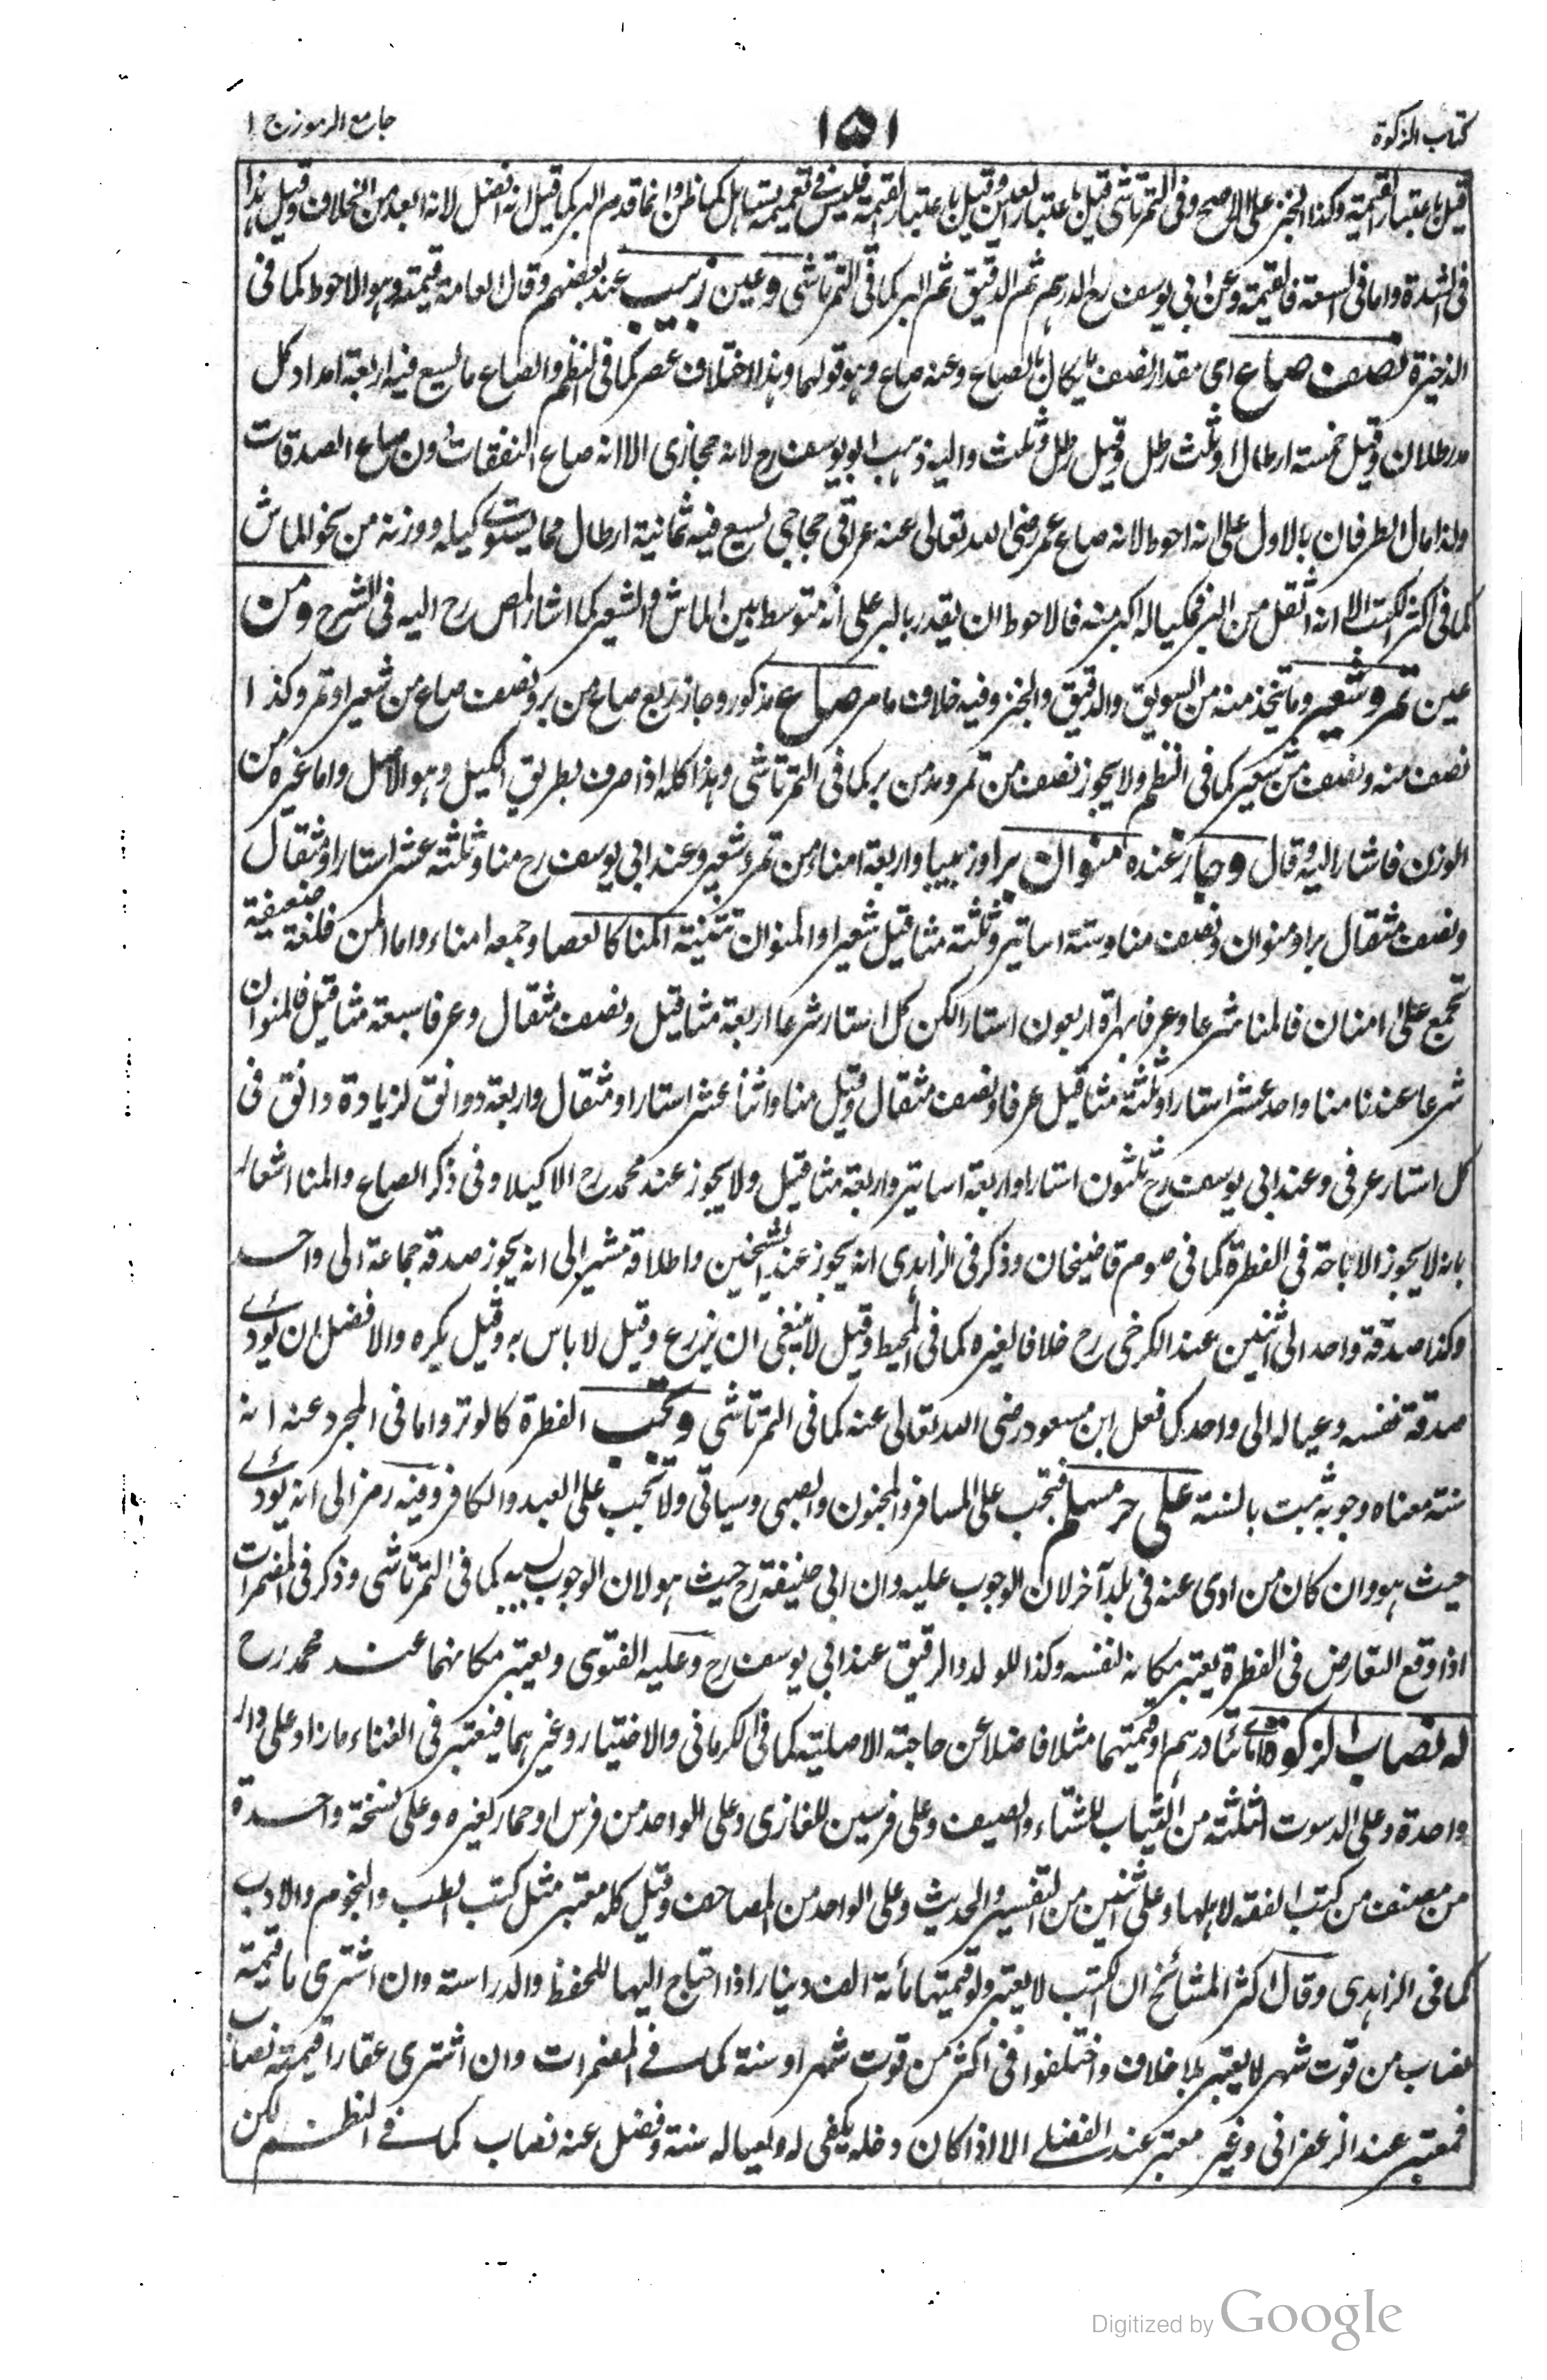 كتاب الزكوة
١٥١
جامع الرموز ج ١
قيل باعتبار القيمة وكذا الخبز على الاصح وفى التمرتاشى قيل باعتبار العين وقيل باعتبار القيمة فليس فے تعميمه تساهل كما ظن وانما قدم البر كما قيل انه افضل لانه ابعد من الخلاف وقيل هذا
فى الشدة واما فى السعة فالقيمة وعن ابى يوسف رح الدرهم ثم الدقيق ثم البر كما فى التمرتاشى وعين زبيب عند بعضهم وقال العامة قيمته وهو الاحوط كما فى
الذخيرة نصف صاع اى مقدار نصف يكال بالصاع وعنه صاع وهو قولهما وهذا لاختلاف عصر كما فى النظم والصاع ما يسع فيه اربعة امداد كل
مد رطلان وقيل خمسة ارطال وثلث رطل وقيل رطل وثلث واليه ذهب ابو يوسف رح لانه حجازى الا انه صاع النفقات دون صاع الصدقات
ولذا مال الطرفان بالاول على انه احوط لانه صاع عمر رضى الله تعالى عنه عراقى حجاجى يسع فيه ثمانية ارطال مما يستوے كيله ووزنه من نحو الماش
كما فى اكثر الكتب الا انه اثقل من البر فمكياله اكبر منه فالاحوط ان يقدر بالبر على انه متوسط بين الماش والشعير كما اشار المص رح اليه فى الشرح ومن
عين تمر وشعير وما يتخذ منه من السويق والدقيق والخبز وفيه خلاف ما مر صاع مذكور وجاز ربع صاع من بر ونصف صاع من شعير او تمر وكذا
نصف منه ونصف من شعير كما فى النظم ولا يجوز نصف من تمر ومد من بر كما فى التمرتاشى وهذا كله اذا صرف بطريق الكيل وهو الاصل واما غيره من
الوزن فاشار اليه وقال وجاز عنده منوان برا وزبيبا واربعة امناء من تمر وشعير وعند ابى يوسف رح منا وثلثة عشر استارا ومثقال
ونصف مثقال برا ومنوان ونصف منا وستة اساتير وثلثة مثاقيل شعيرا والمنوان تثنية المنا كالعصا وجمعه امناء واما المن فلغة ضعيفة
تجمع على امنان فالمنا شرعا وعرفا بهراة اربعون استارا لكن كل استار شرعا اربعة مثاقيل ونصف مثقال وعرفا سبعة مثاقيل فالمنوان
شرعا عندنا منا واحد عشر استارا وثلثة مثاقيل عرفا ونصف مثقال وقيل منا واثنا عشر استارا ومثقال واربعة دوانق لزيادة دانق فى
كل استار عرفى وعند ابى يوسف رح ثلثون استارا واربعة اساتير واربعة مثاقيل ولا يجوز عند محمد رح الا كيلا وفى ذكر الصاع والمنا اشعار
بانه لا يجوز الاباحة فى الفطرة كما فى صوم قاضيخان وذكر فى الزاهدى انه يجوز عند الشيخين واطلاقه مشير الى انه يجوز صدقة جماعة الى واحد
وكذا صدقة واحد الى اثنين عند الكرخى رح خلافا لغيره كما فى المحيط وقيل لا ينبغى ان يزرع وقيل لا باس به وقيل يكره والافضل ان يؤدے
صدقة نفسه وعياله الى واحد كما فعل ابن مسعود رضى الله تعالى عنه كما فى التمرتاشى وتجب الفطرة كالوتر واما فى المجرد عنه انه
سنة معناه وجوبه ثبت بالسنة على حر مسلم فتجب على المسافر والمجنون والصبى وسياتى ولا تجب على العبد والكافر وفيه رمز الى انه يؤدے
حيث هو وان كان من ادى عنه فى بلد آخر لان الوجوب عليه وان ابى حنيفة رح حيث هو لان الوجوب بسببه كما فى التمرتاشى وذكر فى المضمرات
اذا وقع التعارض فى الفطرة يعتبر مكانه لنفسه وكذا للولد والرقيق عند ابى يوسف رح وعليه الفتوى ويعتبر مكانهما عند محمد رح
له نصاب الزكوة اى مائتا درهم او قيمتهما مثلا فاضلا عن حاجته الاصلية كما فى الكرمانى والاختيار وغيرهما فيعتبر فى الغناء ما زاد على دار
واحدة وعلى الدسوت الثلثة من الثياب للشتاء والصيف وعلى فرسين للغازى وعلى الواحد من فرس او حمار لغيره وعلى نسخة واحدة
من مصنف من كتب الفقه لاهلها وعلى اثنين من التفسير والحديث وعلى الواحد من المصاحف وقيل كله معتبر مثل كتب الطب والنجوم والادب
كما فى الزاهدى وقال اكثر المشائخ ان الكتب لا يعتبر ولو قيمتها مائة الف دينار اذا احتاج اليها للحفظ والدراسة وان اشترى ما قيمته
نصاب من قوت شهر لا يعتبر بلا خلاف واختلفوا فى اكثر من قوت شهر او سنة كما فے المضمرات وان اشترى عقارا قيمته نصاب
فمعتبر عند الزعفرانى وغير معتبر عند الفضلے الا اذا كان دخله يكفى له ولعياله سنة وفضل عنه نصاب كما فے النظم لكن
Digitized by Google